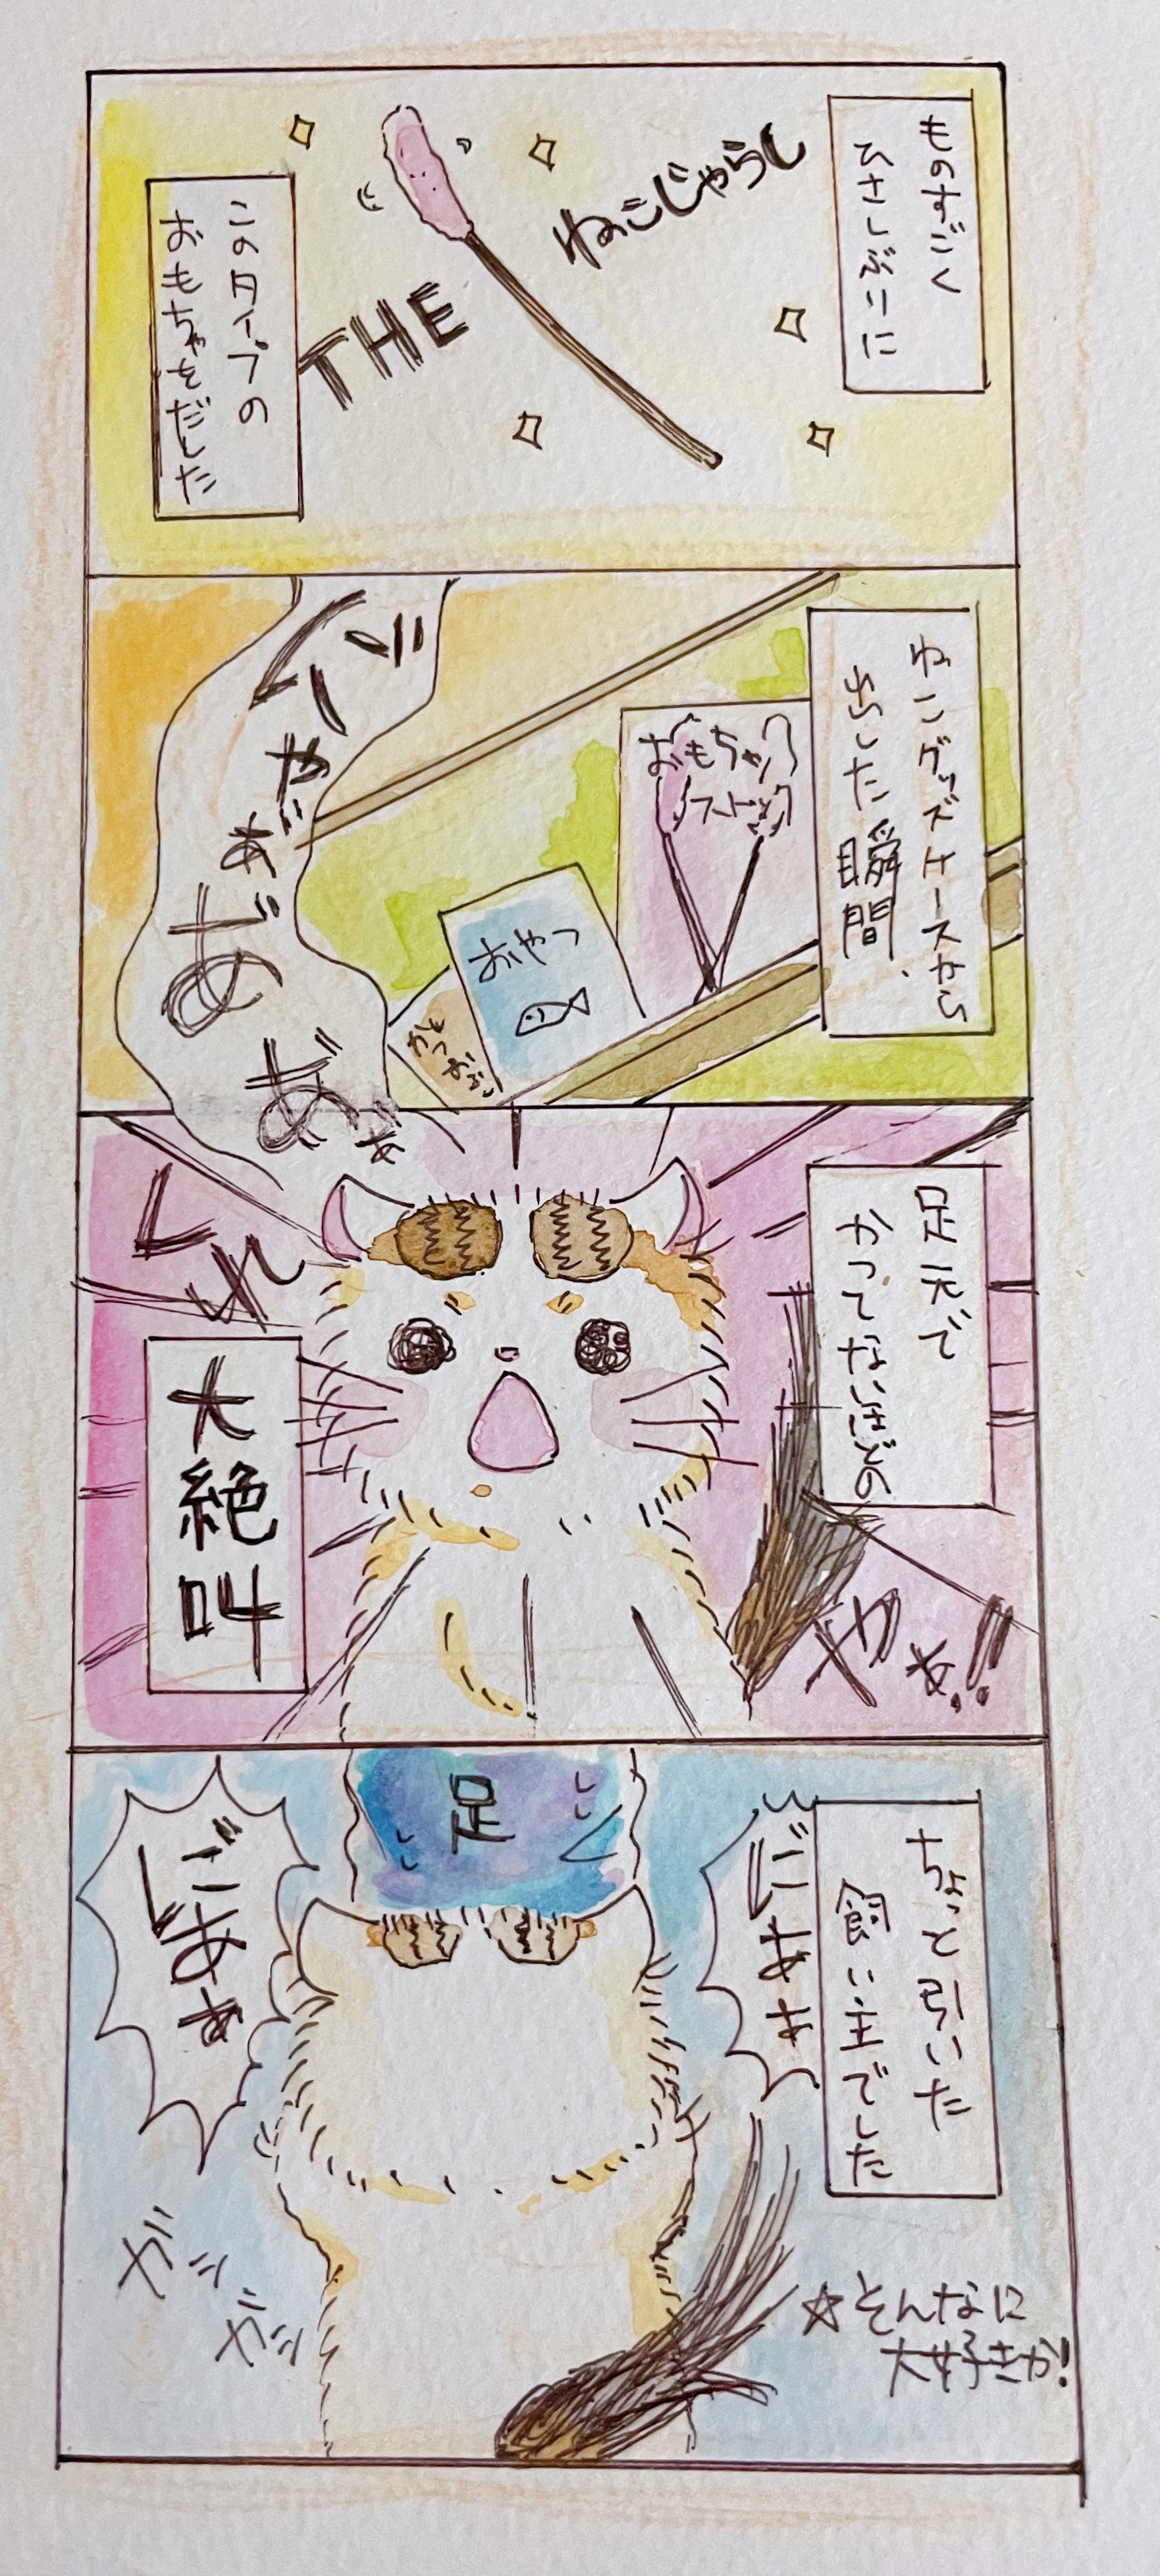 ものすごく
ひさしぶりに
THE
ねこじゃらし
このタイプの
おもちゃをだした
ねこグッズケースから
出した瞬間、
おもちゃ
ストック
おやつ
かつおぶし
足元で
かってないほどの
くれ
やぁ!!
大絶叫
ちょっと引いた
飼い主でした
足
ごあぁ
ガシ
ガシ
☆そんなに
大好きか!